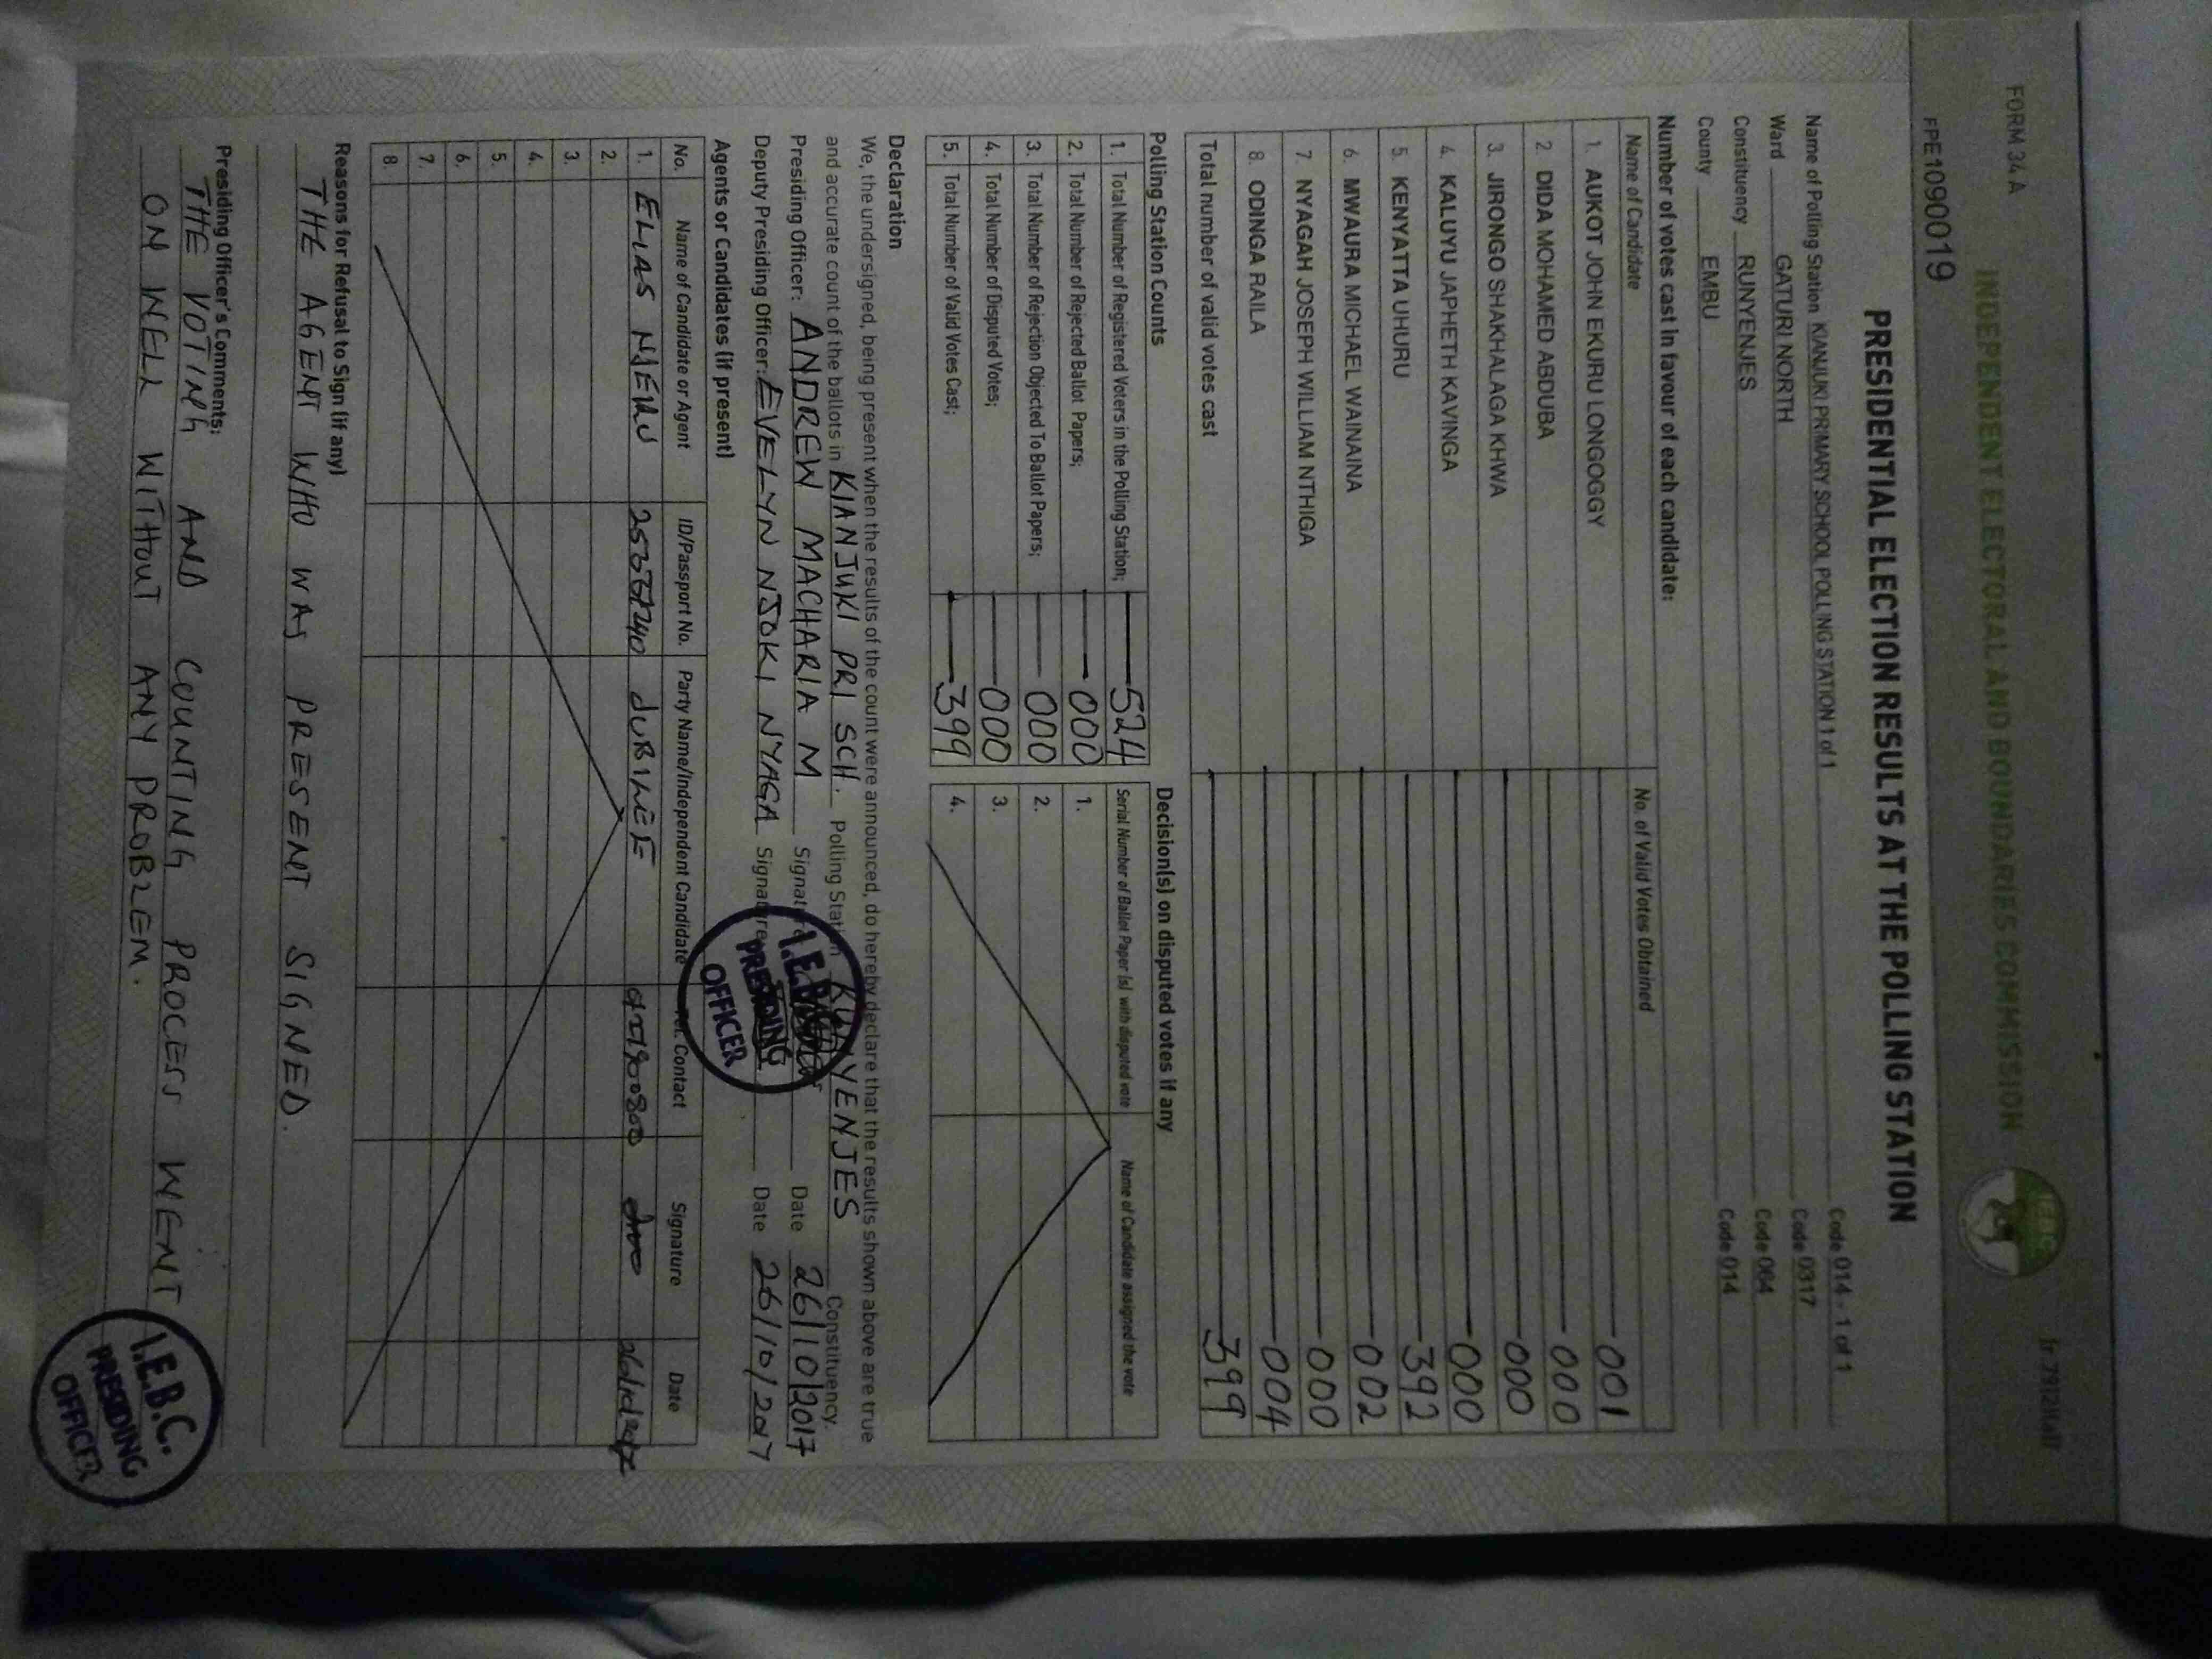 FORM 34 A
INDEPENDENT ELECTORAL AND BOUNDARIES COMMISSION
IEBC
FPE1090019
PRESIDENTIAL ELECTION RESULTS AT THE POLLING STATION
Name of Polling Station KIANJUKI PRIMARY SCHOOL POLLING STATION 1 of 1 Code 014 - 1 of 1
Ward GATURI NORTH Code 0317
Constituency RUNYENJES Code 064
County EMBU Code 014
Number of votes cast in favour of each candidate:
Name of Candidate No. of Valid Votes Obtained
1. AUKOT JOHN EKURU LONGOGGY 001
2. DIDA MOHAMED ABDUBA 000
3. JIRONGO SHAKHALAGA KHWA 000
4. KALUYU JAPHETH KAVINGA 000
5. KENYATTA UHURU 392
6. MWAURA MICHAEL WAINAINA 002
7. NYAGAH JOSEPH WILLIAM NTHIGA 000
8. ODINGA RAILA 004
Total number of valid votes cast 399
Polling Station Counts
1. Total Number of Registered Voters in the Polling Station; 524
2. Total Number of Rejected Ballot Papers; 000
3. Total Number of Rejection Objected To Ballot Papers; 000
4. Total Number of Disputed Votes; 000
5. Total Number of Valid Votes Cast; 399
Decision(s) on disputed votes if any
Serial Number of Ballot Paper (s) with disputed vote Name of Candidate assigned the vote
1.
2.
3.
4.
Declaration
We, the undersigned, being present when the results of the count were announced, do hereby declare that the results shown above are true
and accurate count of the ballots in KIANJUKI PRI SCH. Polling Station RUNYENJES Constituency.
Presiding Officer: ANDREW MACHARIA M Signature Date 26/10/2017
Deputy Presiding Officer: EVELYN NJOKI NYAGA Signature Date 26/10/2017
I.E.B.C.
PRESIDING
OFFICER
Agents or Candidates (if present)
No. Name of Candidate or Agent ID/Passport No. Party Name/Independent Candidate Tel. Contact Signature Date
1. ELIAS JUBILEE
2.
3.
4.
5.
6.
7.
8.
Reasons for Refusal to Sign (if any)
THE AGENT WHO WAS PRESENT SIGNED.
Presiding Officer's Comments:
THE VOTING AND COUNTING PROCESS WENT
ON WELL WITHOUT ANY PROBLEM.
I.E.B.C.
PRESIDING
OFFICER